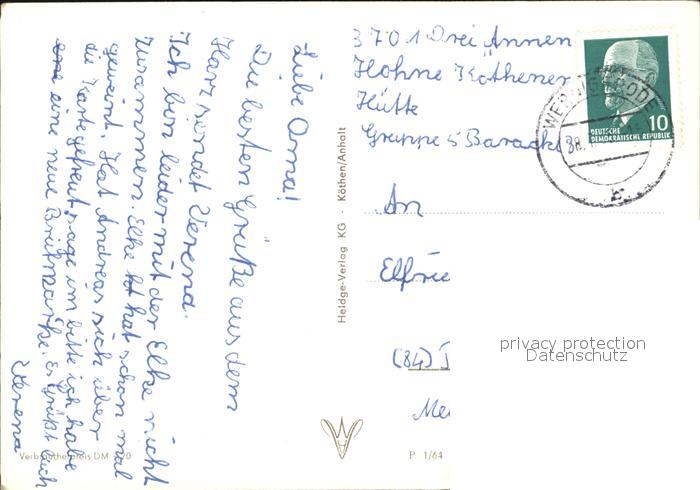 Liebe Oma!
Die besten Grüße aus dem
Harz sendet Verena.
Ich bin leider mit der Elke nicht
zusammen. Elke hat schon mal
geweint. Hat Andreas sich über
die Karte gefreut, sage im bitte ich habe
eine neue Briefmarke. Es grüßt Euch
Verena
Verbraucherpreis DM
Heldge-Verlag KG · Köthen/Anhalt
3701 Drei Annen
Hohne Köthener
Hütte
Gruppe 5 Baracke
WERNIGERODE
10
DEUTSCHE
DEMOKRATISCHE REPUBLIK
An
Elfrie
(84)
Me
P 1/64
privacy protection
Datenschutz